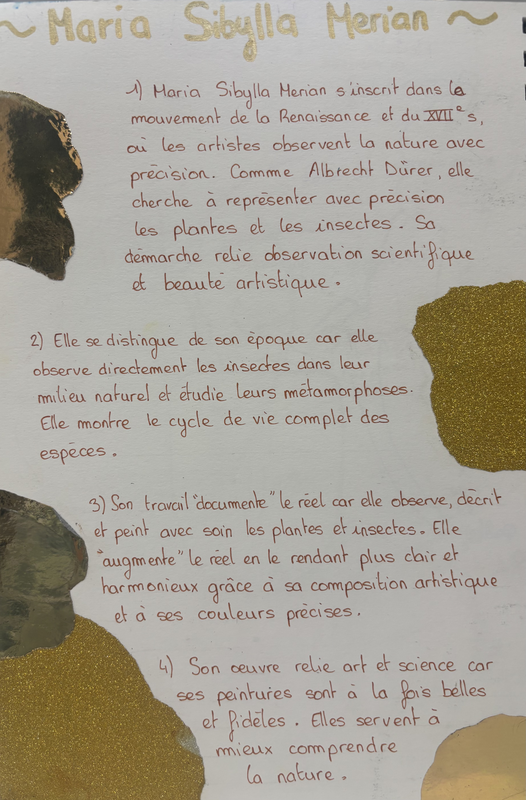 ~ Maria Sibylla Merian ~
1) Maria Sibylla Merian s'inscrit dans le
mouvement de la Renaissance et du XVIIe s,
où les artistes observent la nature avec
précision. Comme Albrecht Dürer, elle
cherche à représenter avec précision
les plantes et les insectes. Sa
démarche relie observation scientifique
et beauté artistique.
2) Elle se distingue de son époque car elle
observe directement les insectes dans leur
milieu naturel et étudie leurs métamorphoses.
Elle montre le cycle de vie complet des
espèces.
3) Son travail "documente" le réel car elle observe, décrit
et peint avec soin les plantes et insectes. Elle
"augmente" le réel en le rendant plus clair et
harmonieux grâce à sa composition artistique
et à ses couleurs précises.
4) Son œuvre relie art et science car
ses peintures sont à la fois belles
et fidèles. Elles servent à
mieux comprendre
la nature.